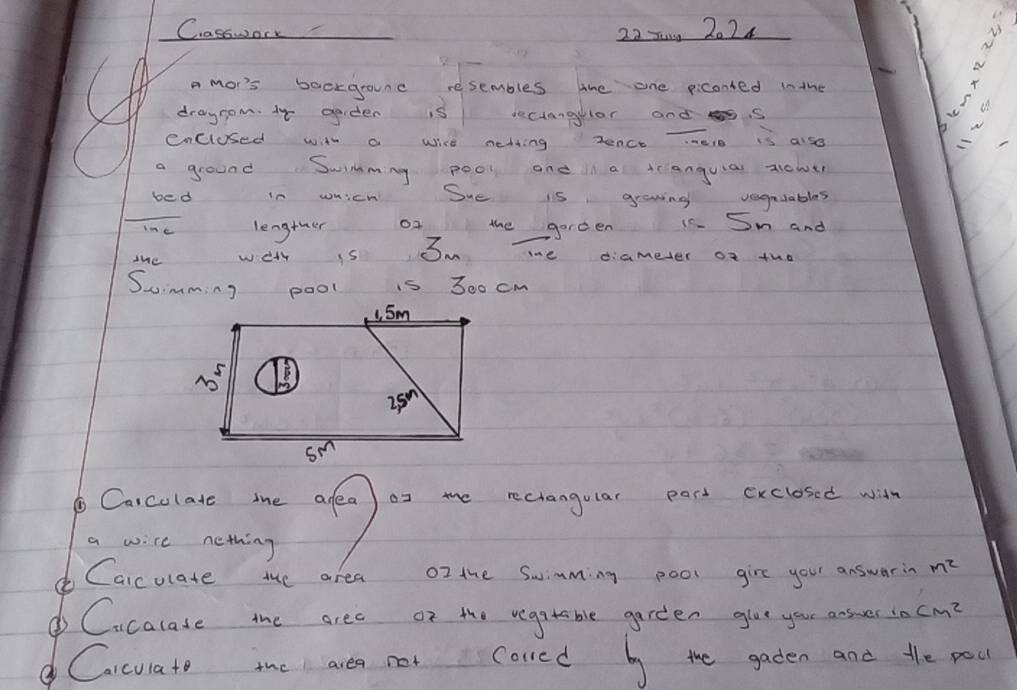 Classwork 22 July 2021
A mor's background resembles the one piconted in the
draygom. the garden is rectangular and is
enclosed with a wire netting fence there is also
a ground Swimming pool and a triangular flower
bed in which She is growing vegatables
The lengther of the garden is 5m and
the width is 3m The diameter of the
Swimming pool is 300 cm
1,5m
3m
300cm
2,5m
5m
① Calculate the area of the rectangular part exclosed with
a wire nething
② Calculate the area of the Swimming pool give your answar in m²
③ Calcalate the area of the vegatable garden give your answer in cm²
④ Calculate the area not Corred by the gaden and the pool